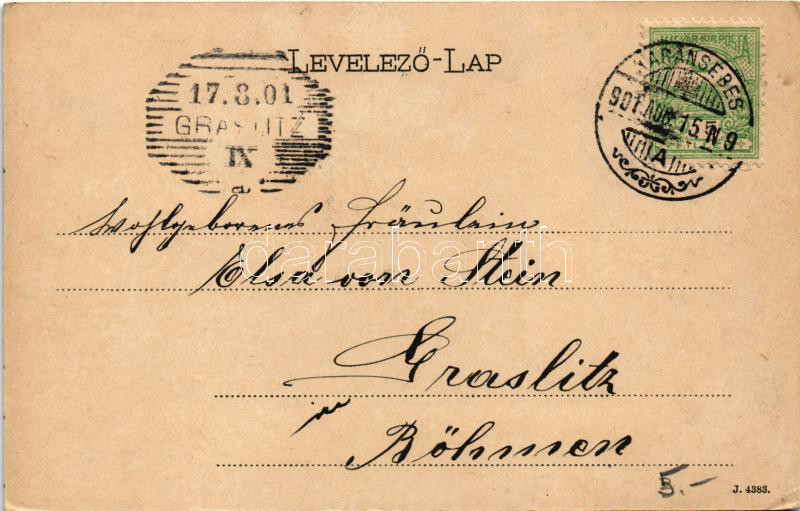 MAGYAR KIR. POSTA
LEVELEZŐ-LAP
KARÁNSEBES
901 AUG 15 N 9
A
17.8.01
GRASLITZ
IX
a
Wohlgeborenes Fräulein
Elsa von Stein
darabanth
Graslitz
in
Böhmen
5.-
J. 4383.